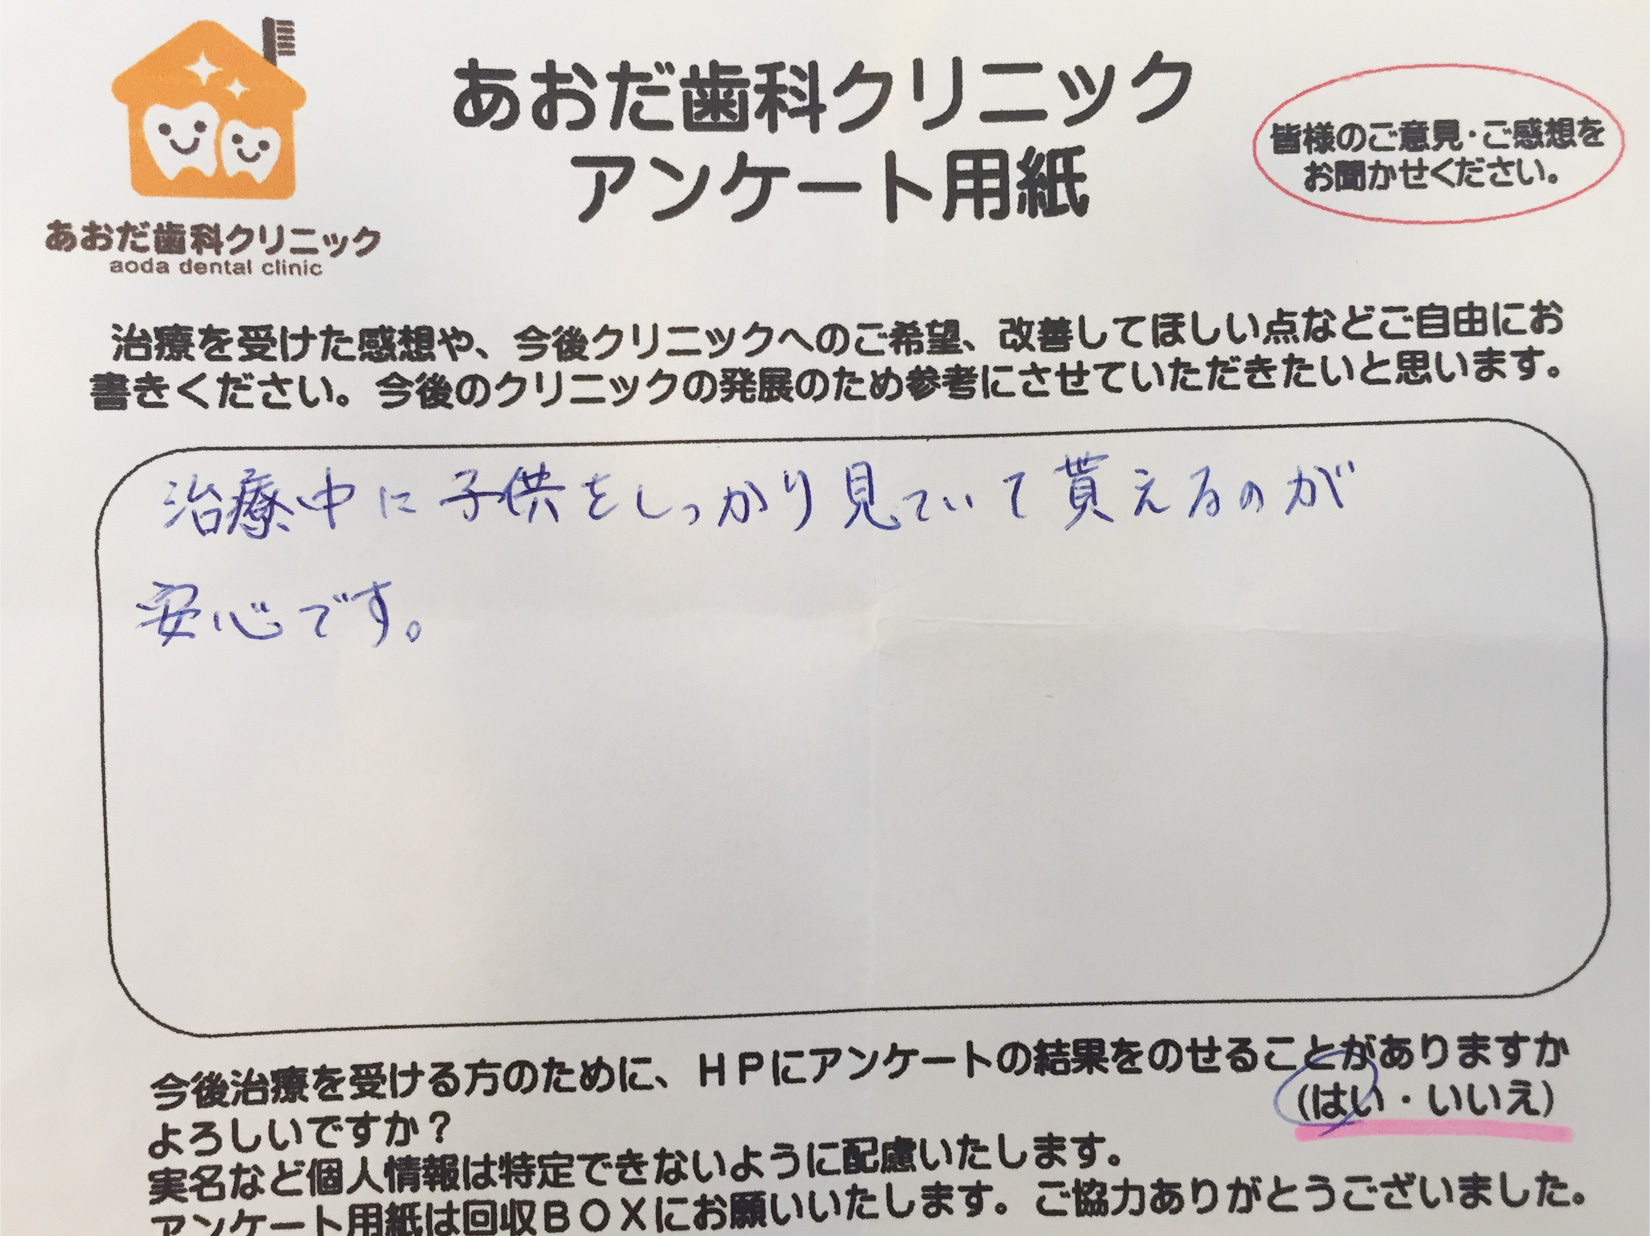 あおだ歯科クリニック
aoda dental clinic
あおだ歯科クリニック
アンケート用紙
皆様のご意見・ご感想を
お聞かせください。
治療を受けた感想や、今後クリニックへのご希望、改善してほしい点などご自由にお
書きください。今後のクリニックの発展のため参考にさせていただきたいと思います。
治療中に子供をしっかり見ていて貰えるのが
安心です。
今後治療を受ける方のために、HPにアンケートの結果をのせることがありますか
よろしいですか？
(はい・いいえ)
実名など個人情報は特定できないように配慮いたします。
アンケート用紙は回収BOXにお願いいたします。ご協力ありがとうございました。